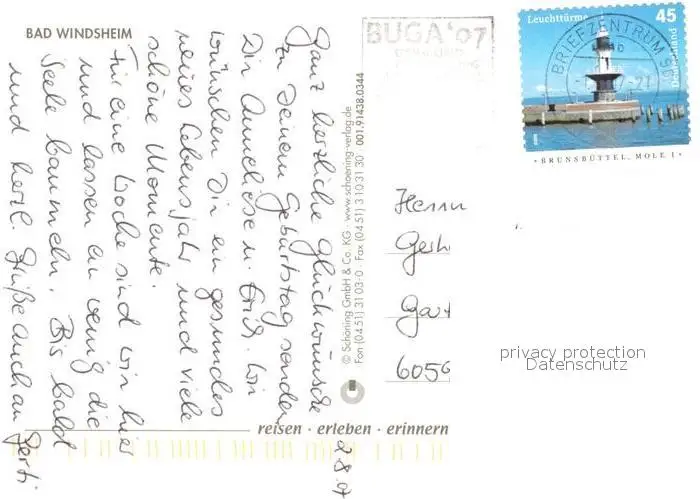 BAD WINDSHEIM
Ganz herzliche Glückwünsche
zu Deinem Geburtstag senden
Dir Anneliese u. Erich. Wir
wünschen Dir ein gesundes
neues Lebensjahr und viele
schöne Momente.
Für eine Woche sind wir hier
und lassen ein wenig die
Seele baumeln. Bis bald
und herzl. Grüße auch an Gerti
2.8.07
© Schöning GmbH & Co. KG · www.schoening-verlag.de
Fon (04 51) 31 03-0 · Fax (04 51) 3 10 31 30 001.91438.0344
reisen · erleben · erinnern
BUGA '07
Leuchttürme 45
Deutschland
BRIEFZENTRUM
· BRUNSBÜTTEL, MOLE 1 ·
Herrn
Gerh
Gart
6056
privacy protection
Datenschutz